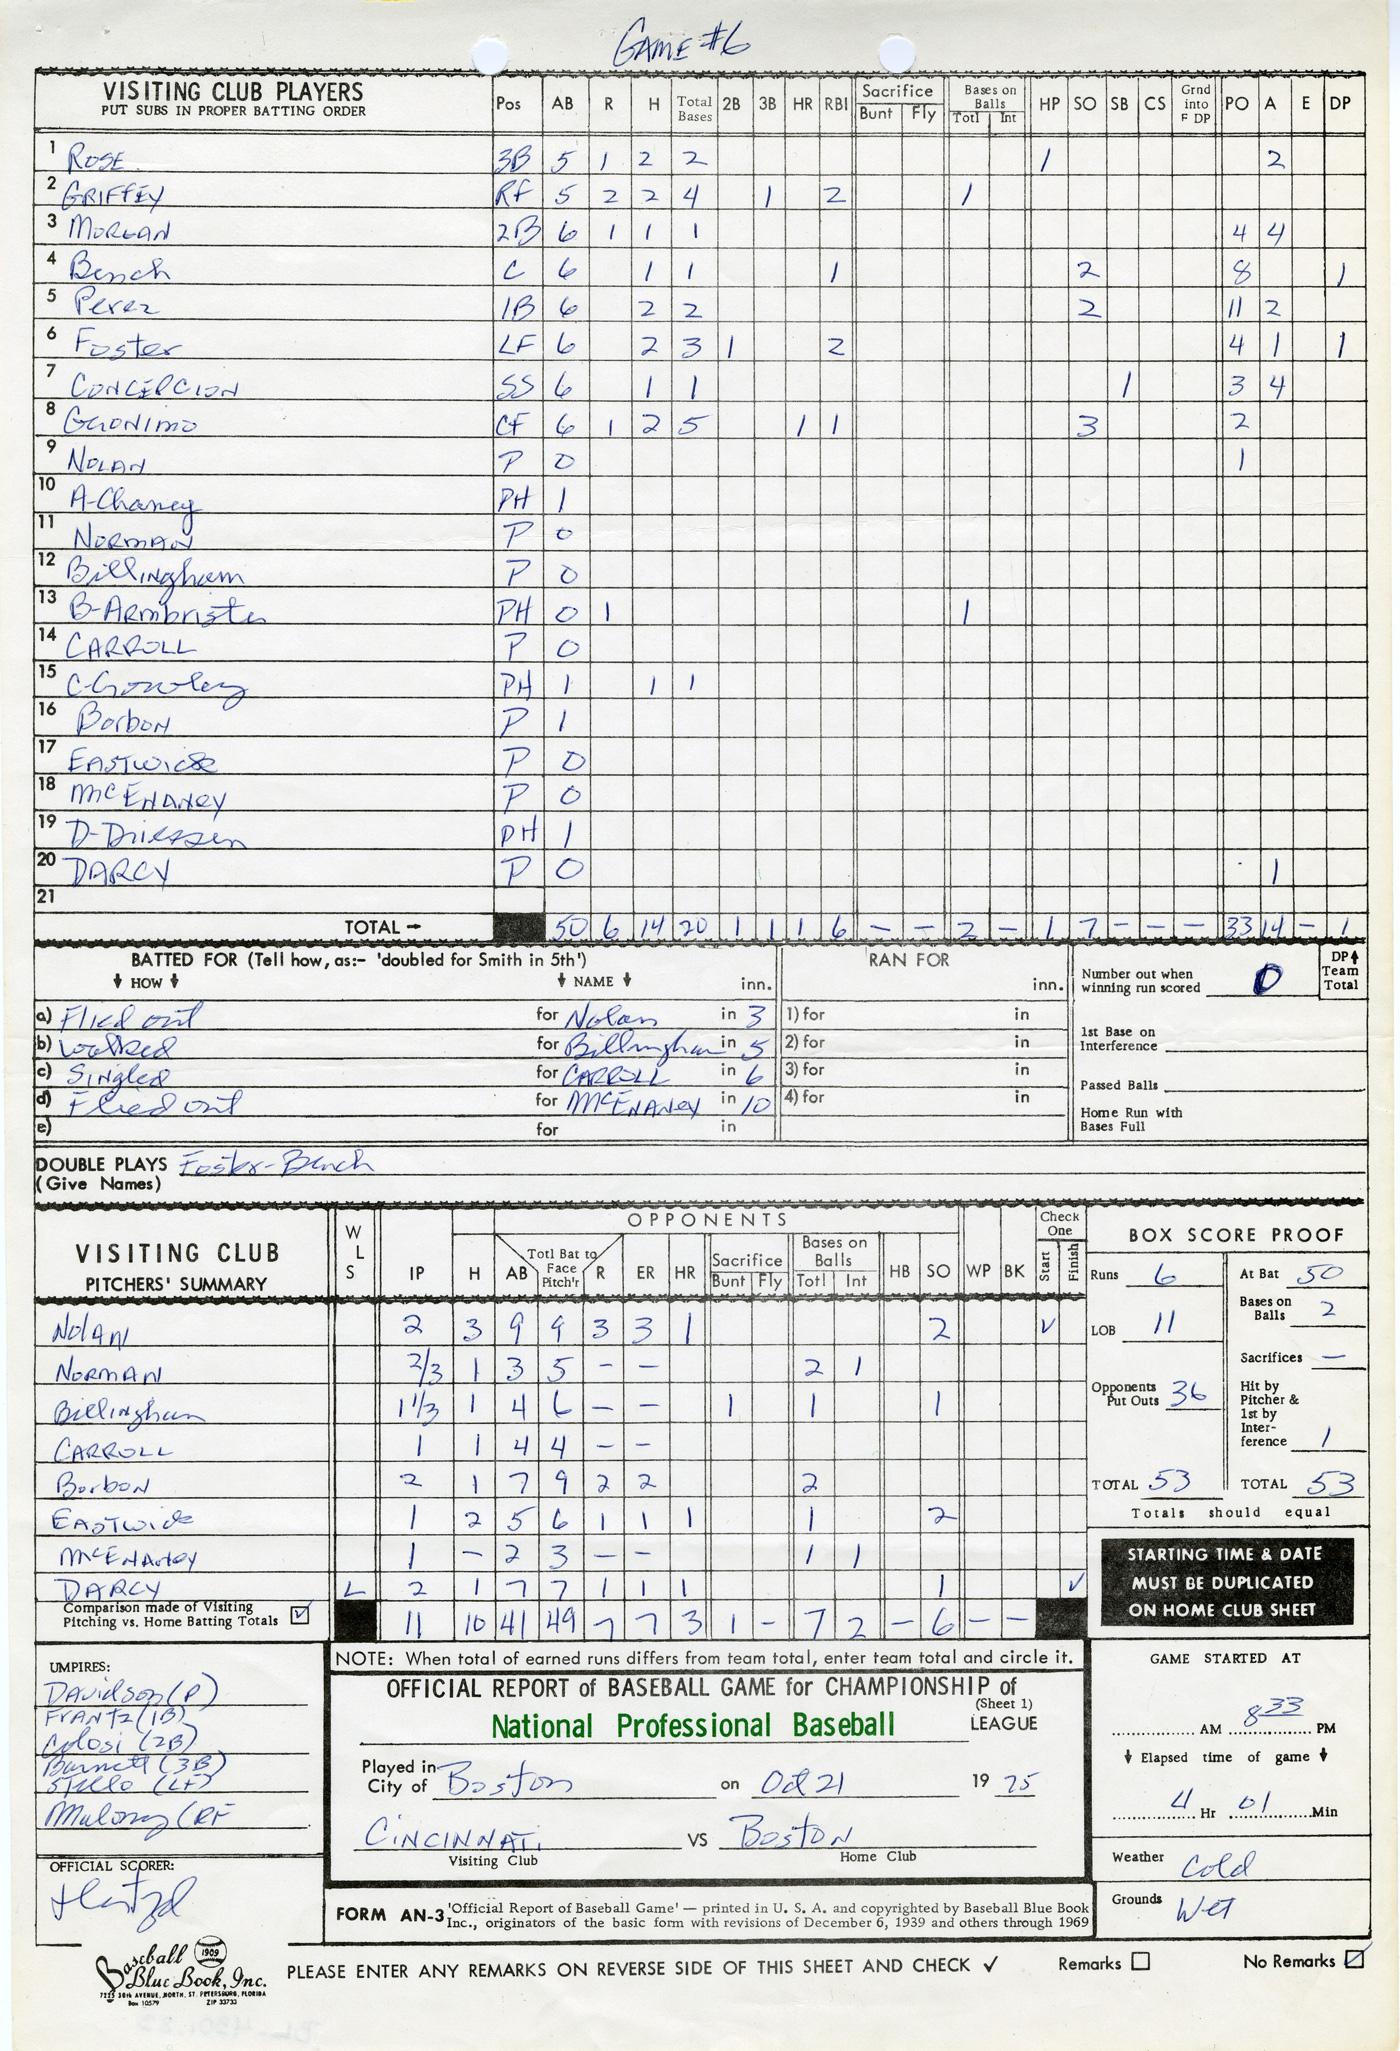 GAME #6
VISITING CLUB PLAYERS
PUT SUBS IN PROPER BATTING ORDER
Pos AB R H Total Bases 2B 3B HR RBI Sacrifice Bunt Fly Bases on Balls Totl Int HP SO SB CS Grnd into F DP PO A E DP
1 ROSE 3B 5 1 2 2 1 2
2 GRIFFEY RF 5 2 2 4 1 2 1
3 MORGAN 2B 6 1 1 1 4 4
4 Bench C 6 1 1 1 2 8 1
5 Perez 1B 6 2 2 2 11 2
6 Foster LF 6 2 3 1 2 4 1 1
7 CONCEPCION SS 6 1 1 1 3 4
8 GERONIMO CF 6 1 2 5 1 1 3 2
9 NOLAN P 0 1
10 A-Chaney PH 1
11 NORMAN P 0
12 Billingham P 0
13 B-Armbrister PH 0 1 1
14 CARROLL P 0
15 C-Crowley PH 1 1 1
16 Borbon P 1
17 EASTWICK P 0
18 McENANEY P 0
19 D-Driessen PH 1
20 DARCY P 0 1
21
TOTAL → 50 6 14 20 1 1 1 6 – – 2 – 1 7 – – – 33 14 – 1
BATTED FOR (Tell how, as:- 'doubled for Smith in 5th') RAN FOR
HOW NAME inn. inn.
a) Flied out for Nolan in 3 1) for in
b) Walked for Billingham in 5 2) for in
c) Singled for CARROLL in 6 3) for in
d) Flied out for McENANEY in 10 4) for in
e) for in
Number out when winning run scored 0
DP Team Total
1st Base on Interference
Passed Balls
Home Run with Bases Full
DOUBLE PLAYS Foster-Bench
(Give Names)
VISITING CLUB
PITCHERS' SUMMARY
OPPONENTS
W L S IP H AB Totl Bat to Face Pitch'r R ER HR Sacrifice Bunt Fly Bases on Balls Totl Int HB SO WP BK Check One Start Finish
NOLAN 2 3 9 9 3 3 1 2 ✓
NORMAN 2/3 1 3 5 – – 2 1
Billingham 1 1/3 1 4 6 – – 1 1 1
CARROLL 1 1 4 4 – –
Borbon 2 1 7 9 2 2 2
EASTWICK 1 2 5 6 1 1 1 1 2
McENANEY 1 – 2 3 – – 1 1
DARCY L 2 1 7 7 1 1 1 1 ✓
Comparison made of Visiting Pitching vs. Home Batting Totals ✓ 11 10 41 49 7 7 3 1 – 7 2 – 6 – –
BOX SCORE PROOF
Runs 6 At Bat 50
LOB 11 Bases on Balls 2
Sacrifices –
Opponents Put Outs 36 Hit by Pitcher & 1st by Interference 1
TOTAL 53 TOTAL 53
Totals should equal
STARTING TIME & DATE
MUST BE DUPLICATED
ON HOME CLUB SHEET
NOTE: When total of earned runs differs from team total, enter team total and circle it.
UMPIRES:
Davidson (P)
FRANTZ (1B)
Colosi (2B)
Barnett (3B)
Stello (LF)
Maloney (RF
OFFICIAL SCORER:
OFFICIAL REPORT of BASEBALL GAME for CHAMPIONSHIP of
(Sheet 1)
National Professional Baseball LEAGUE
Played in City of Boston on Oct 21 19 75
CINCINNATI VS BOSTON
Visiting Club Home Club
GAME STARTED AT
AM 8 33 PM
Elapsed time of game
4 Hr 01 Min
Weather Cold
Grounds Wet
FORM AN-3 'Official Report of Baseball Game' — printed in U. S. A. and copyrighted by Baseball Blue Book
Inc., originators of the basic form with revisions of December 6, 1939 and others through 1969
Baseball 1909
Blue Book, Inc.
7225 30th AVENUE, NORTH, ST. PETERSBURG, FLORIDA
Box 10579 ZIP 33733
PLEASE ENTER ANY REMARKS ON REVERSE SIDE OF THIS SHEET AND CHECK ✓ Remarks No Remarks ✓